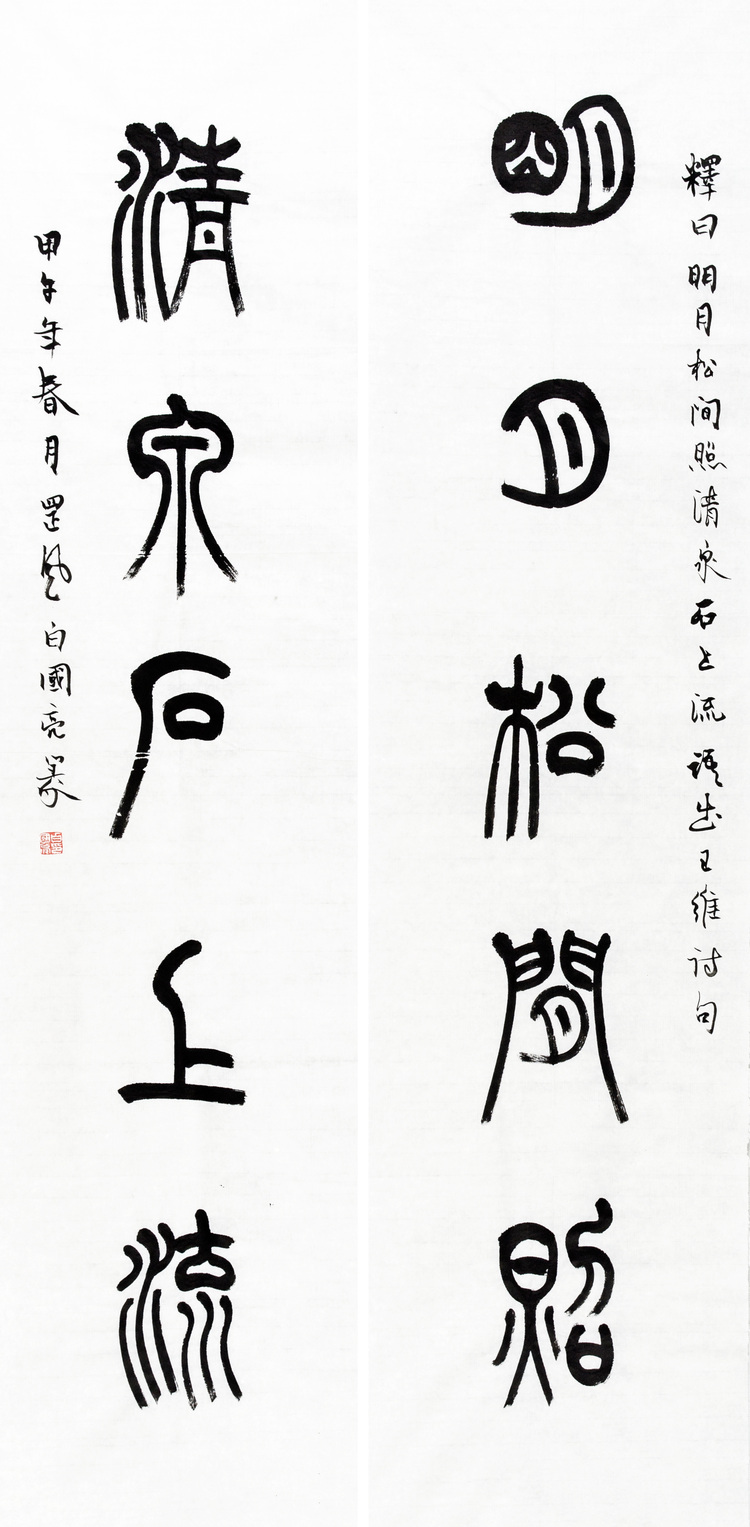 釋曰明月松间照清泉石上流語出王維诗句
明月松間照
清泉石上流
甲午年春月罡风白國亮篆